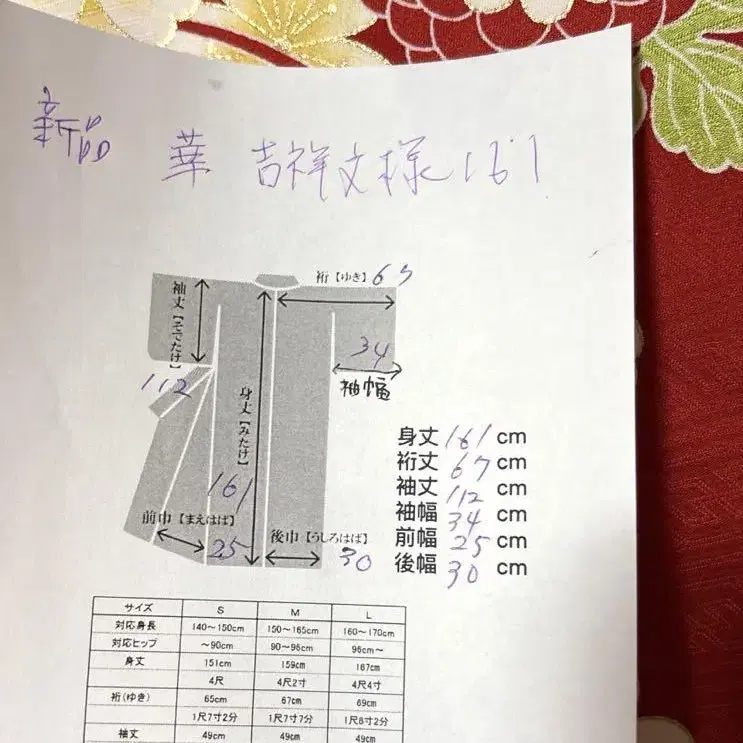 新品 華 吉祥文様161
裄【ゆき】67
袖丈【そでたけ】
112
34
袖幅
身丈【みたけ】
161
前巾【まえはば】
25
後巾【うしろはば】
30
身丈 161 cm
裄丈 67 cm
袖丈 112 cm
袖幅 34 cm
前幅 25 cm
後幅 30 cm
サイズ S M L
対応身長 140～150cm 150～165cm 160～170cm
対応ヒップ ～90cm 90～96cm 96cm～
身丈 151cm 159cm 167cm
4尺 4尺2寸 4尺4寸
裄(ゆき) 65cm 67cm 69cm
1尺7寸2分 1尺7寸7分 1尺8寸2分
袖丈 49cm 49cm 49cm